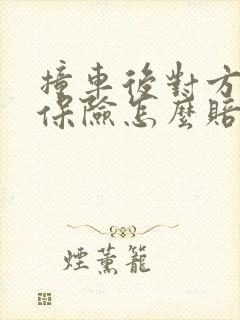 撞車後對方
保險怎麼賠
煙薰籠